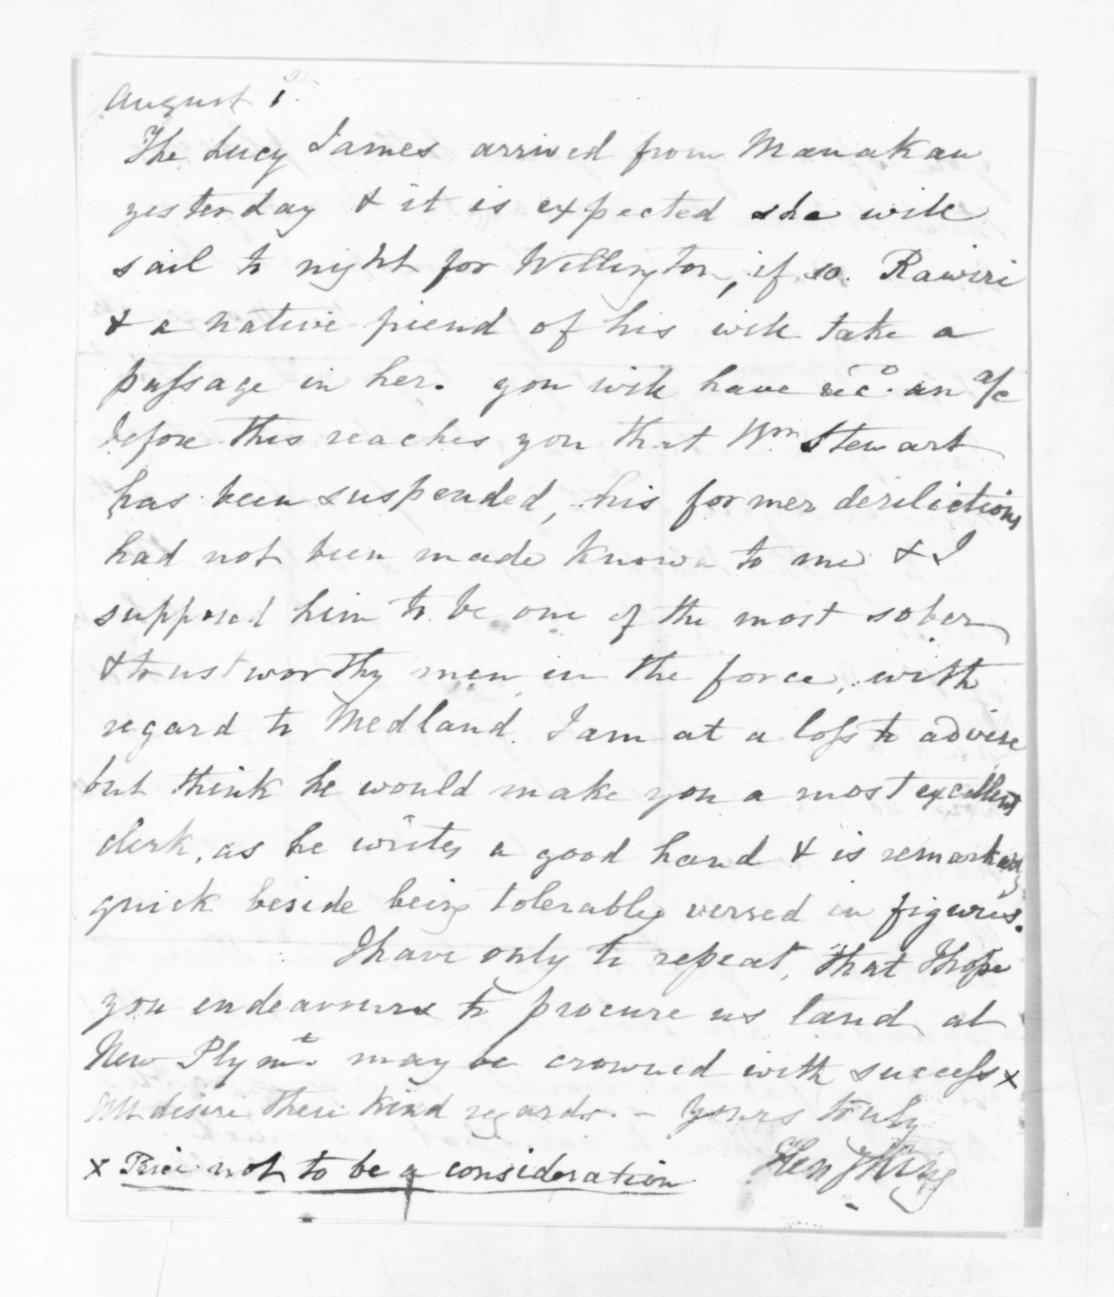 August 1st
The Lucy James arrived from Manakau
yesterday & it is expected she will
sail to night for Wellington, if so. Rawiri
& a native friend of his will take a
passage in her. you will have recd. an a/c
before this reaches you that Wm Stewart
has been suspended, his former derilictions
had not been made known to me & I
supposed him to be one of the most sober
& trustworthy men in the force, with
regard to Medland. I am at a loss to advise
but think he would make you a most excellent
clerk, as he writes a good hand & is remarkably
quick beside being tolerably versed in figures.
I have only to repeat, that I hope
you endeavours to procure us land at
New Plymt. may be crowned with success x
All desire their kind regards. - Yours truly
x Price not to be a consideration
Henry King